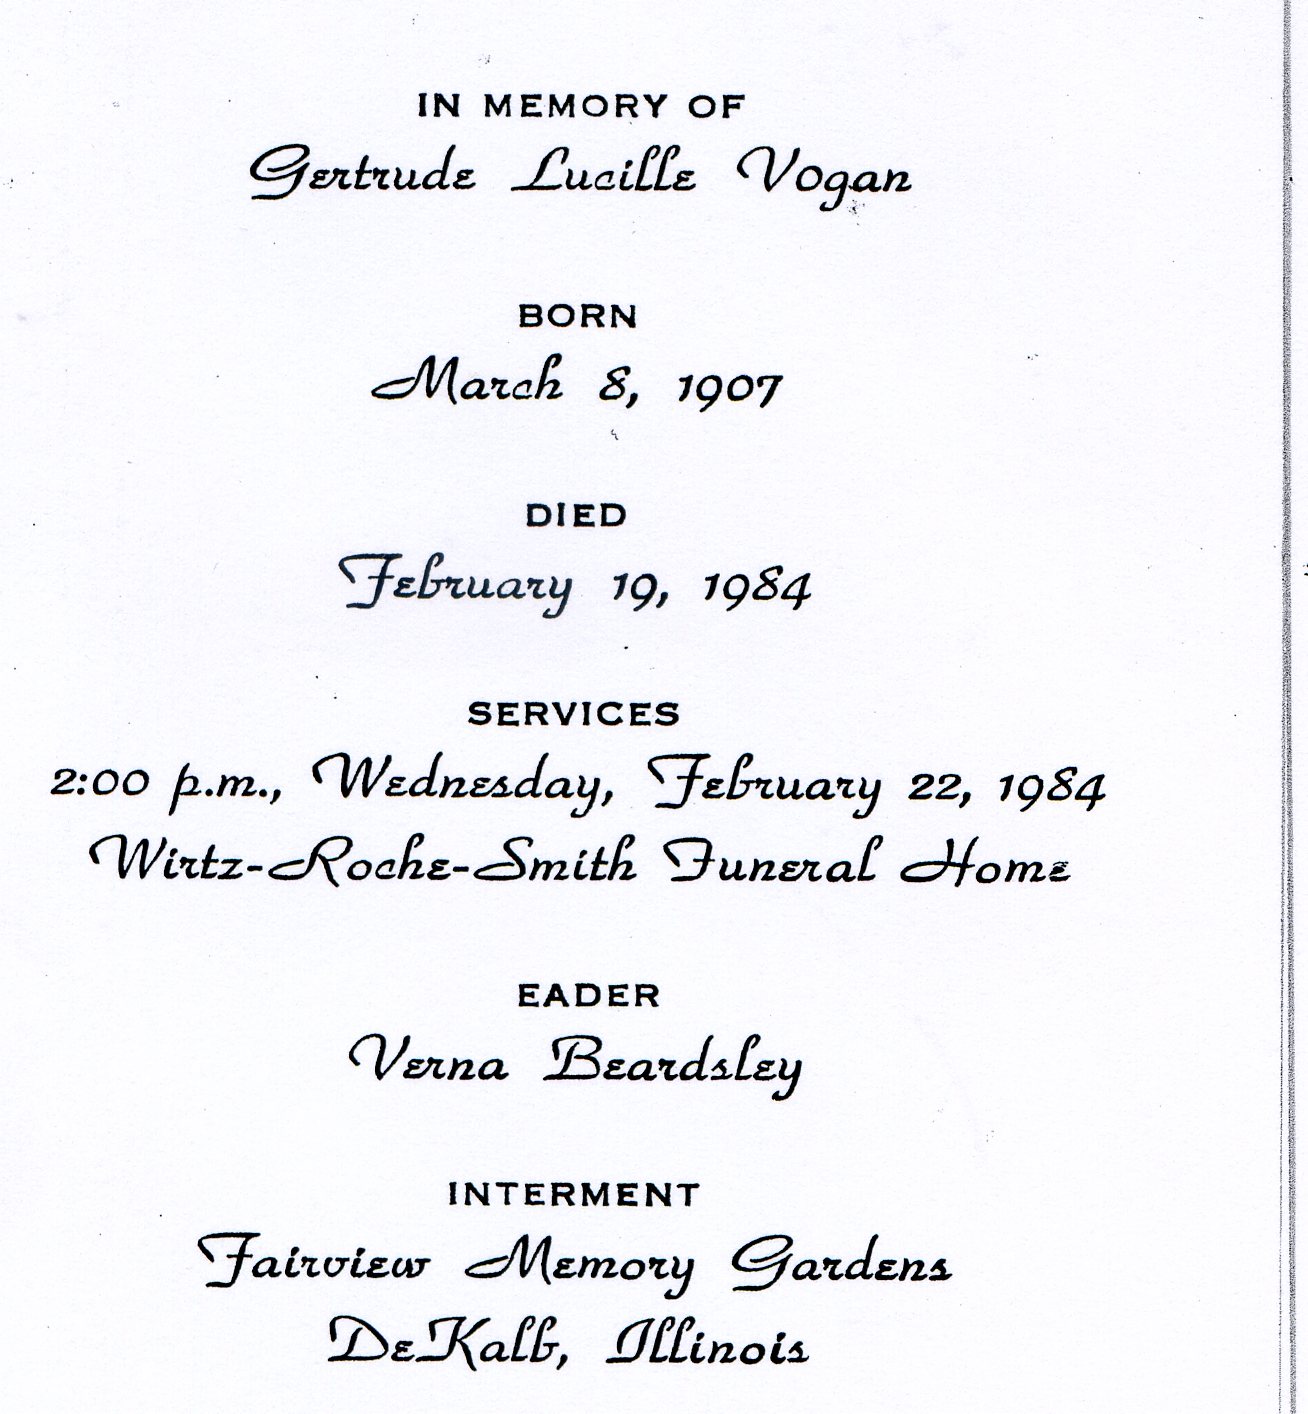 IN MEMORY OF
Gertrude Lucille Vogan
BORN
March 8, 1907
DIED
February 19, 1984
SERVICES
2:00 p.m., Wednesday, February 22, 1984
Wirtz-Roche-Smith Funeral Home
EADER
Verna Beardsley
INTERMENT
Fairview Memory Gardens
DeKalb, Illinois